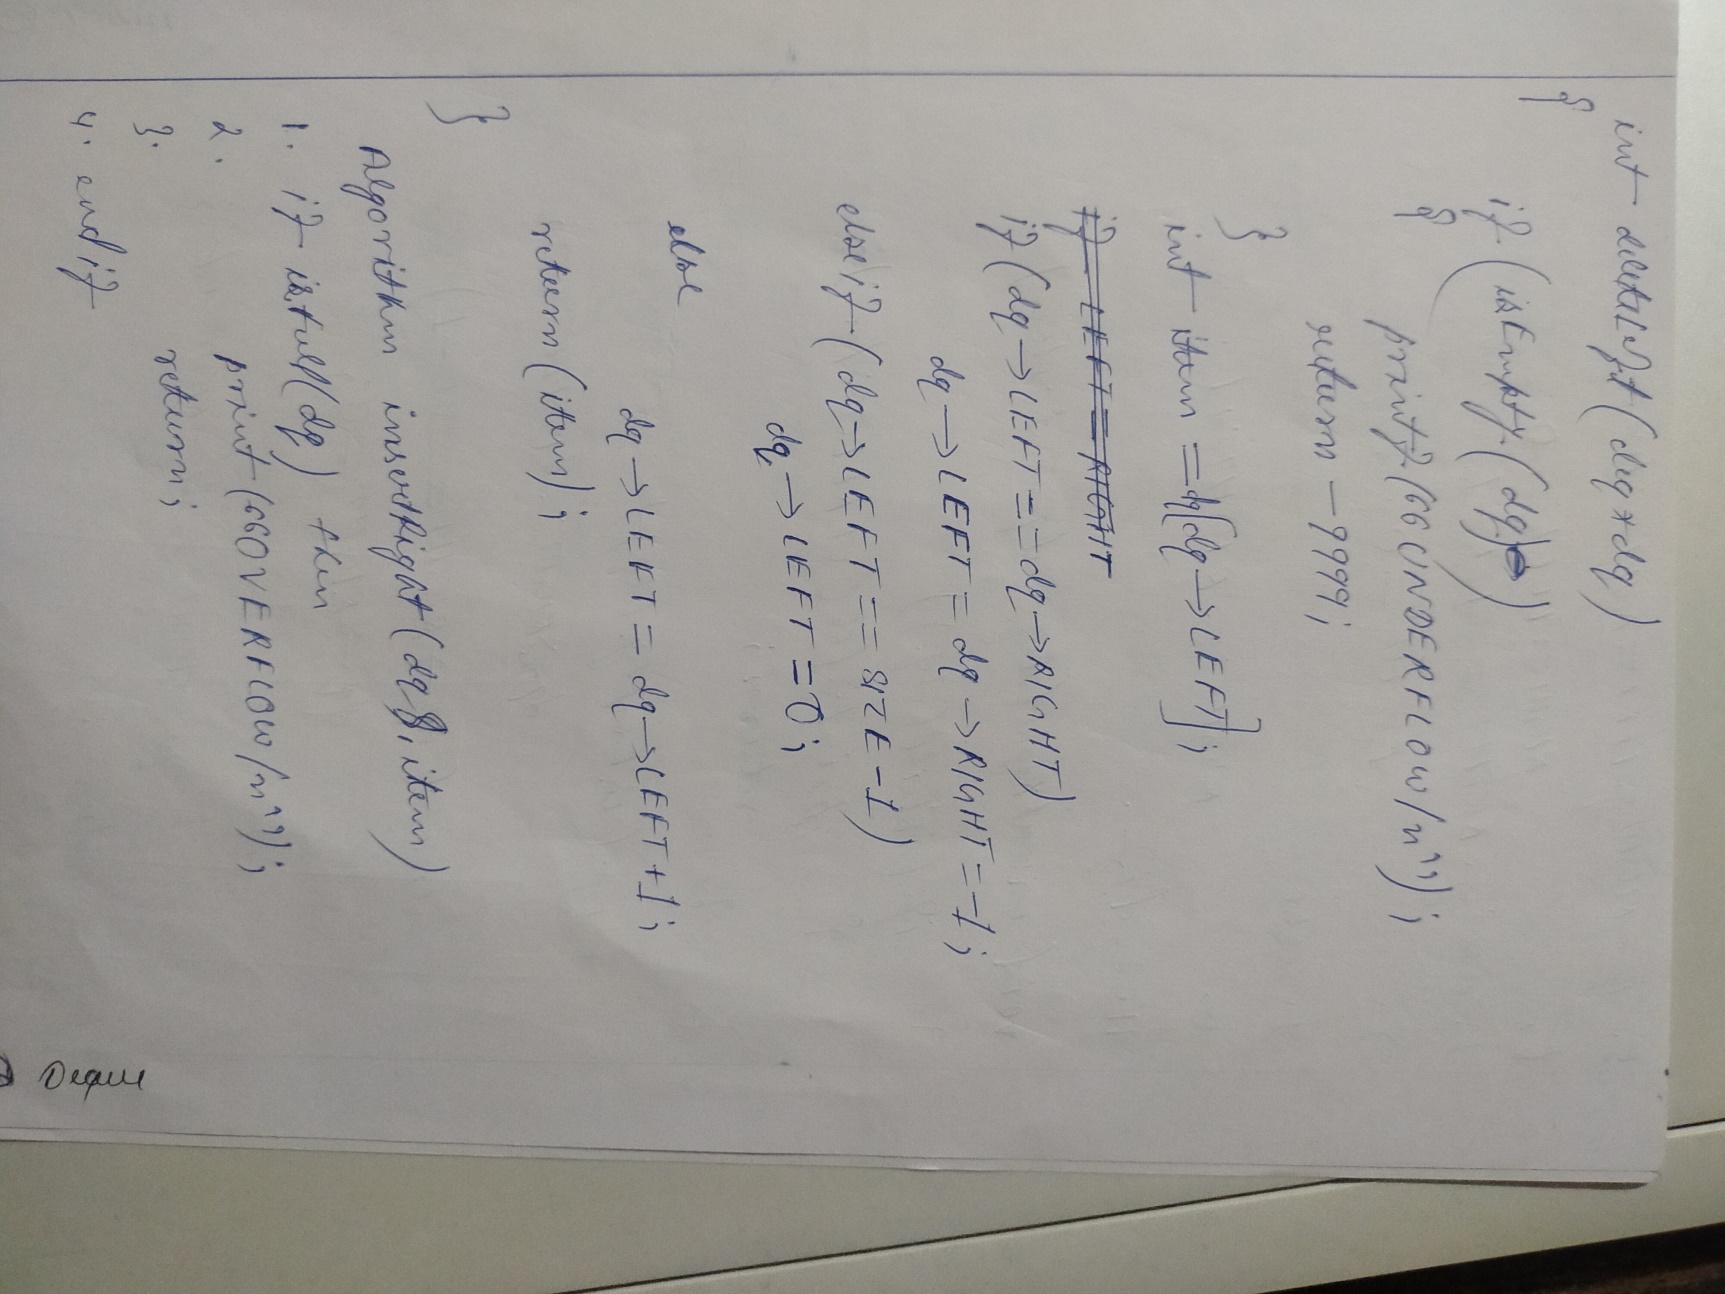 int deleteLeft(deq *dq)
{
if (isEmpty(dq))
{
printf(“UNDERFLOW/n”);
return -9999;
}
int item = dq[dq→LEFT];
if LEFT == RIGHT
if (dq→LEFT == dq→RIGHT)
dq→LEFT = dq→RIGHT = -1;
else if (dq→LEFT == SIZE-1)
dq→LEFT = 0;
else
dq→LEFT = dq→LEFT+1;
return (item);
}
Algorithm insertRight(dq, item)
1. if isfull(dq) then
2. print(“OVERFLOW/n”);
3. return;
4. end if
Deque